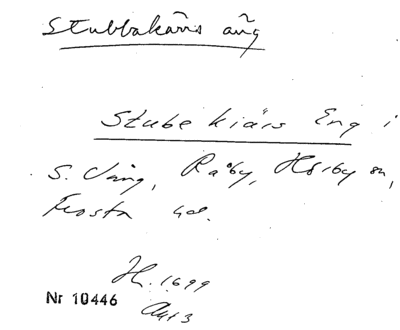 Stubbakärrs äng
Stube kiärs Eng i
S. Vång, Råby, Hörby sn,
Frosta hd.
H. 1699
Nr 10446
Akt 3